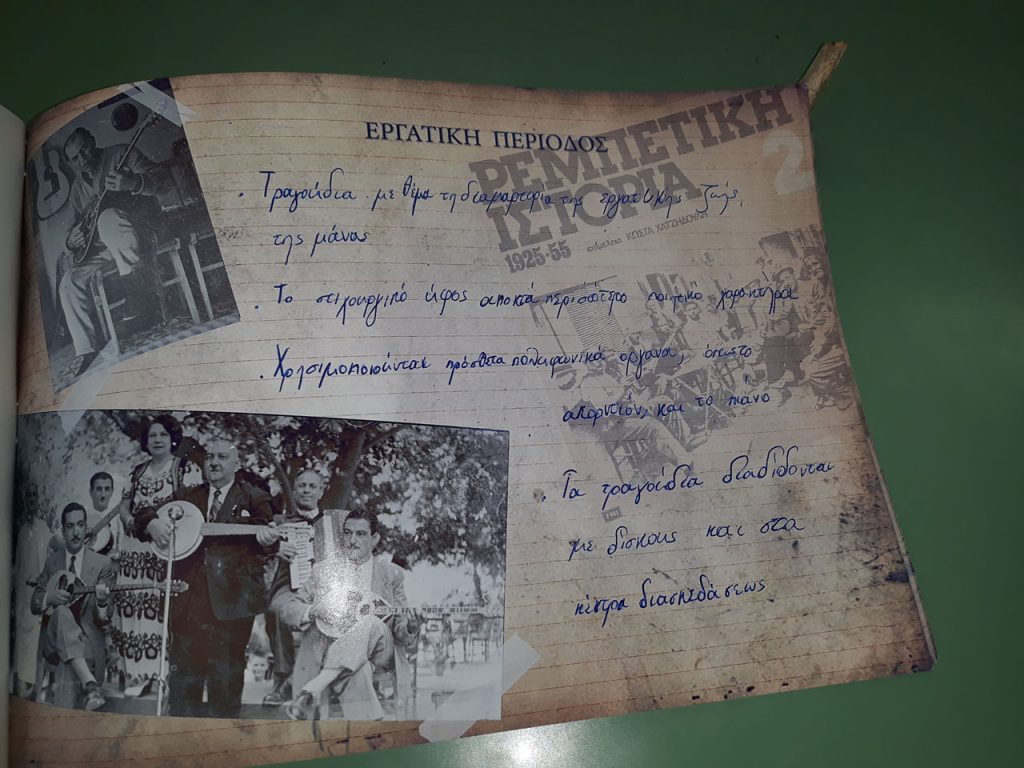 ΕΡΓΑΤΙΚΗ ΠΕΡΙΟΔΟΣ
ΡΕΜΠΕΤΙΚΗ
ΙΣΤΟΡΙΑ 2
1925-55 επιμέλεια ΚΩΣΤΑ ΧΑΤΖΗΔΟΥΛΗ
• Τραγούδια με θέμα τη διαμαρτυρία της εργατικής ζωής,
της μάνας
• Το στιχουργικό ύφος αποκτά περισσότερο ποιητικό χαρακτήρα
• Χρησιμοποιούνται πρόσθετα πολυφωνικά όργανα, όπως το
ακορντεόν, και το πιάνο
• Τα τραγούδια διαδίδονται
EMI
με δίσκους και στα
κέντρα διασκεδάσεως